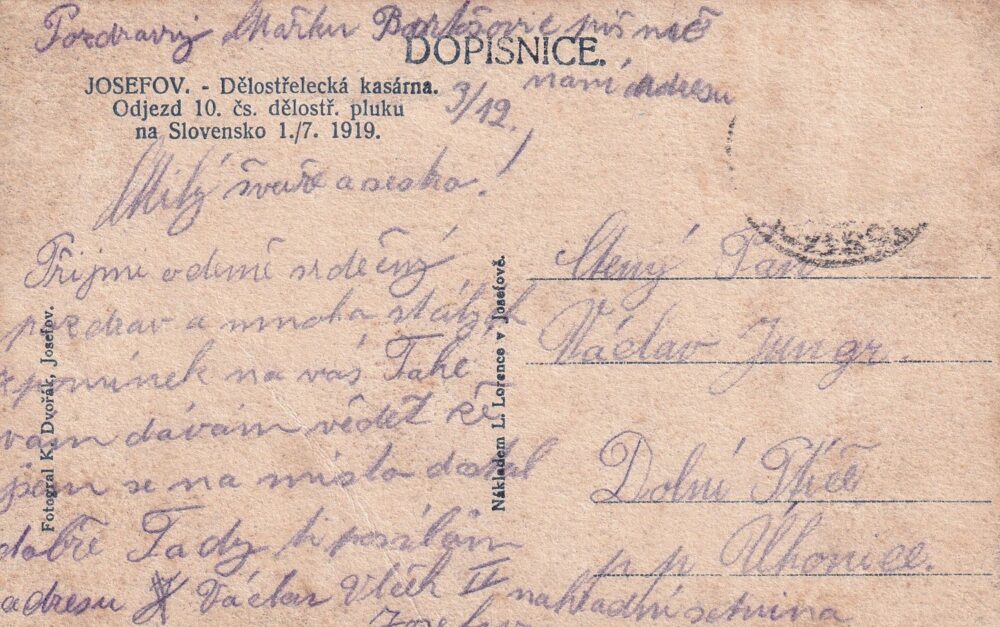 Pozdravuj Mařku piš mě
DOPISNICE.
na mí adresu
JOSEFOV. - Dělostřelecká kasárna.
Odjezd 10. čs. dělostř. pluku
na Slovensko 1./7. 1919.
3/12.
Milý švaře a sestro!
Přijme odemě srdečný
pozdrav a mnoho stálých
zpomínek na vás Také
vám dávám vědět že
jsem se na místo dostal
dobře Tady ti posílám
adresu Václav Vlček II náhradní setnina
Josefov
Fotograf K. Dvořák, Josefov.
Nákladem L. Lorence v Josefově.
Ctený Pan
Václav Jungr.
Dolní
p p Úhonice.